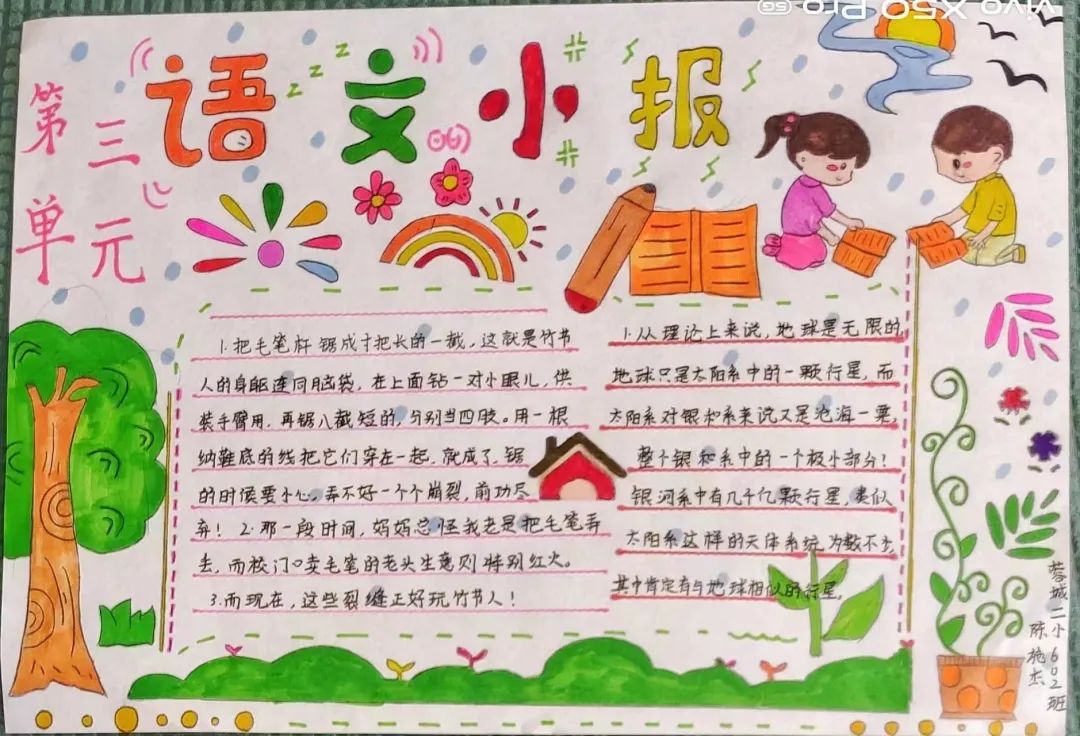 vivo X50 Pro 5G
语文小报
第三
单元
1.把毛笔杆锯成寸把长的一截,这就是竹节
人的身躯连同脑袋,在上面钻一对小眼儿,供
装手臂用。再锯八截短的,分别当四肢。用一根
纳鞋底的线把它们穿在一起,就成了。锯
的时候要小心,弄不好一个个崩裂,前功尽
弃!2.那一段时间,妈妈总怪我老是把毛笔弄
去,而校门口卖毛笔的老头生意则特别红火。
3.而现在,这些裂缝正好玩竹节人!
1.从理论上来说,地球是无限的
地球只是太阳系中的一颗行星,而
太阳系对银和系来说又是沧海一栗,
整个银和系中的一个极小部分!
银河系中有几千亿颗行星,类似
太阳系这样的天体系统为数不少,
其中肯定有与地球相似的行星,
蓉城二小602班
陈施杰